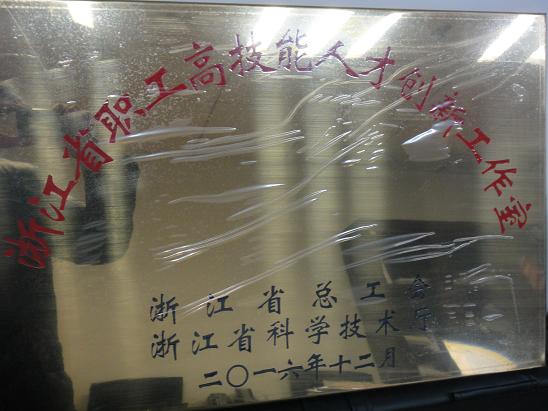 浙江省职工高技能人才创新工作室
浙江省总工会
浙江省科学技术厅
二〇一六年十二月